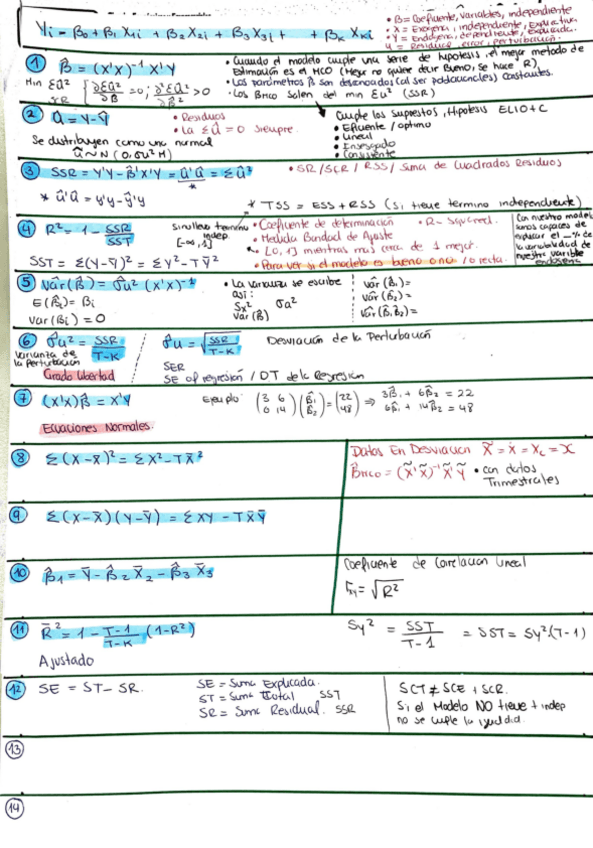 Yi = β0 + β1 X1i + β2 X2i + β3 X3i + + βk Xki
• β = Coeficiente, variables, independiente
• X = Exogena, independiente, explicativa
• Y = Endogena, dependiente, explicada
u = Residuos, error, perturbación.
① β̂ = (X'X)⁻¹ X'Y
• Cuando el modelo cumple una serie de hipotesis, el mejor metodo de
Estimación es el MCO (Mejor no quiere decir Bueno, se hace R²).
Min Σû² { ∂Σû²/∂β = 0 ; ∂²Σû²/∂β² > 0
SR
• Los parámetros β son desconocidos (al ser poblacionales) constantes.
• Los βmco salen del min Σu² (SSR)
② û = Y - Ŷ
• Residuos
• La Σû = 0 siempre.
Se distribuyen como una normal
û ~ N (0, σu² M)
Cumple los supuestos, Hipotesis ELIO + C
• Eficiente / optimo
• Lineal
• Insesgado
• Consistente
③ SSR = Y'Y - β̂'X'Y = û'û = Σû²
• SR / SCR / RSS / Suma de Cuadrados Residuos
* û'û = Y'Y - Ŷ'Y
* TSS = ESS + RSS (si tiene termino independiente)
④ R² = 1 - SSR/SST
Si no lleva termino
indep.
[-∞, 1]
• Coeficiente de determinación
• R-Squared.
• Medida Bondad de Ajuste
• [0, 1] mientras más cerca de 1 mejor.
• Para ver si el modelo es bueno o no / o recta.
SST = Σ(Y-Ȳ)² = ΣY² - TȲ²
Con nuestro modelo
somos capaces de
explicar el __% de
la variabilidad de
nuestra varible
endogena
⑤ Vâr(β̂) = σ̂u² (X'X)⁻¹
E(β̂i) = βi
Var(βi) = 0
• La varianza se escribe
así:
Sx² σu²
Var (β̂)
Vâr (β̂1) =
Vâr (β̂2) =
Vâr (β̂1 β̂2) =
⑥ σ̂u² = SSR/T-K
σ̂u = √SSR/T-K
Desviación de la Perturbación
Varianza de
la perturbación
Grado libertad
SER
SE of regression / DT de la Regresion
⑦ (X'X)β̂ = X'Y
Ejemplo: (3 6 / 6 14) (β̂1 / β̂2) = (22 / 48) ⇒ 3β̂1 + 6β̂2 = 22
6β̂1 + 14β̂2 = 48
Ecuaciones Normales.
⑧ Σ(X-X̄)² = ΣX² - TX̄²
Datos En Desviación X̃ = Ẋ = Xc = x
β̂mco = (X̃'X̃)⁻¹ X̃'Ỹ • con datos
Trimestrales
⑨ Σ(X-X̄)(Y-Ȳ) = ΣXY - TX̄Ȳ
⑩ β̂1 = Ȳ - β̂2 X̄2 - β̂3 X̄3
Coeficiente de Correlacion lineal
rxy = √R²
⑪ R̄² = 1 - T-1/T-K (1-R²)
Ajustado
Sy² = SST/T-1 = SST = Sy²·(T-1)
⑫ SE = ST - SR.
SE = Suma Explicada.
ST = Suma Total SST
SR = Suma Residual. SSR
SCT ≠ SCE + SCR.
Si el Modelo NO tiene t indep
no se cumple la igualdad.
⑬
⑭